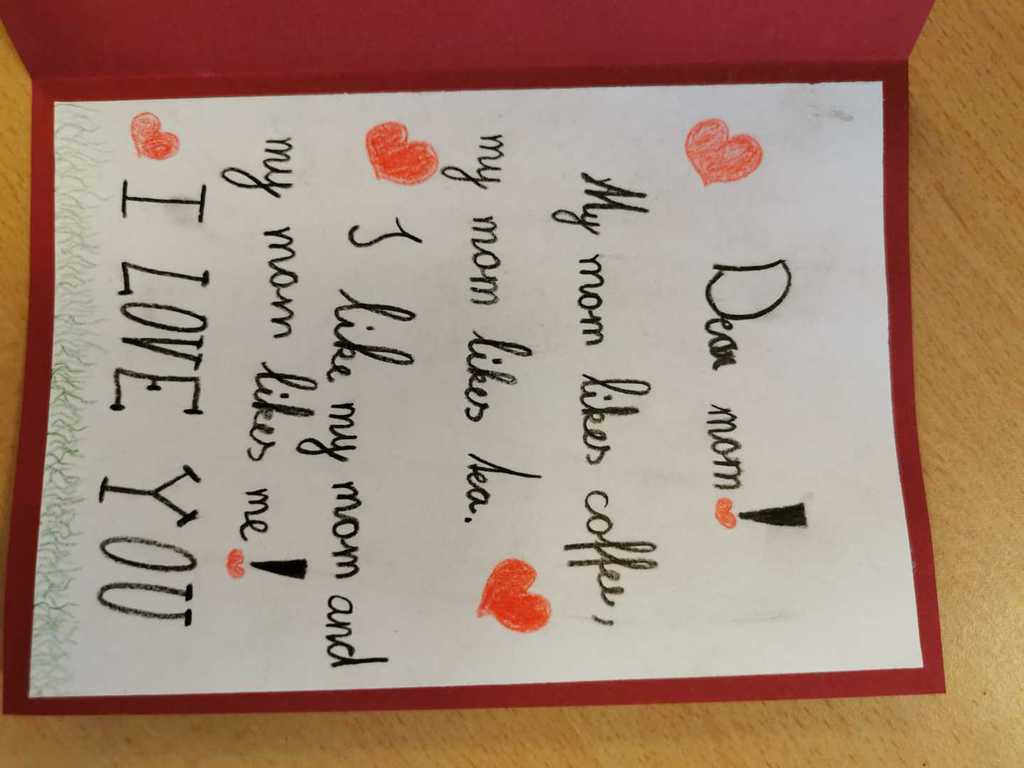 Dear mom!
My mom likes coffee,
my mom likes tea.
I like my mom and
my mom likes me!
I LOVE YOU